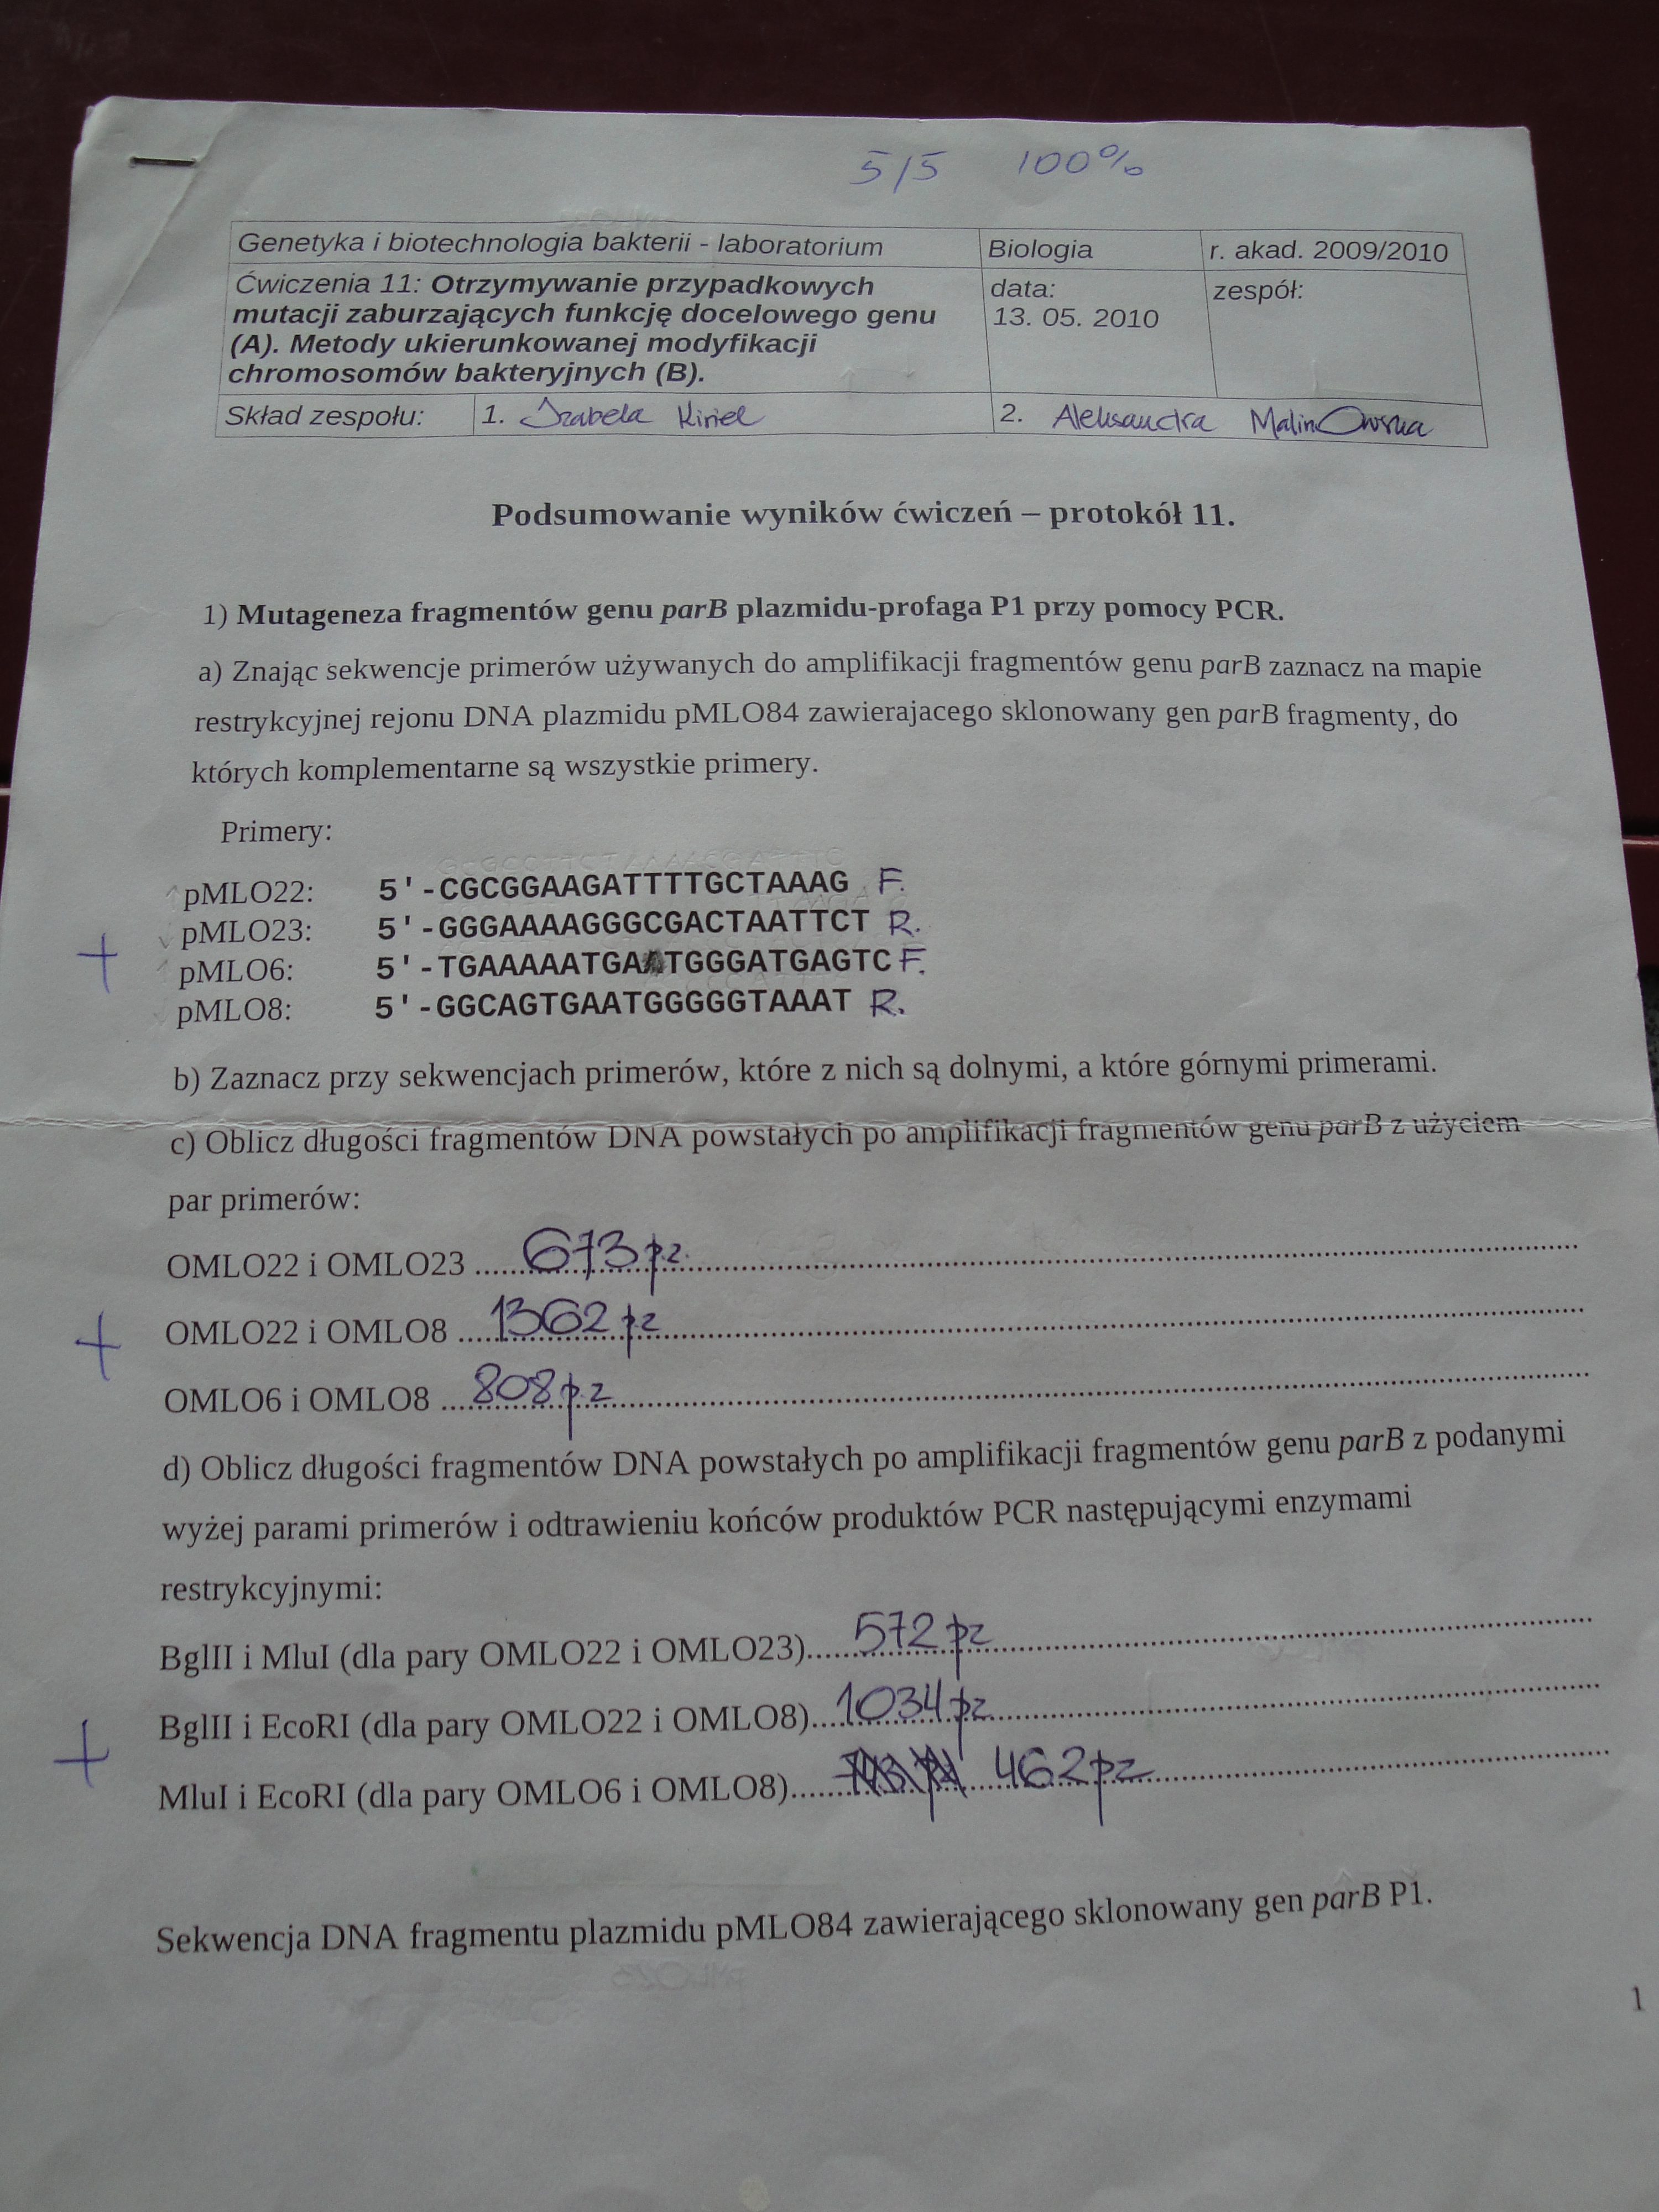 5/5 100%
Genetyka i biotechnologia bakterii - laboratorium Biologia r. akad. 2009/2010
Ćwiczenia 11: Otrzymywanie przypadkowych data: zespół:
mutacji zaburzających funkcję docelowego genu 13. 05. 2010
(A). Metody ukierunkowanej modyfikacji
chromosomów bakteryjnych (B).
Skład zespołu: 1. Izabela 2. Aleksandra MalinOwska
Podsumowanie wyników ćwiczeń – protokół 11.
1) Mutageneza fragmentów genu parB plazmidu-profaga P1 przy pomocy PCR.
a) Znając sekwencje primerów używanych do amplifikacji fragmentów genu parB zaznacz na mapie
restrykcyjnej rejonu DNA plazmidu pMLO84 zawierajacego sklonowany gen parB fragmenty, do
których komplementarne są wszystkie primery.
Primery:
pMLO22: 5'-CGCGGAAGATTTTGCTAAAG F.
pMLO23: 5'-GGGAAAAGGGCGACTAATTCT R.
+ pMLO6: 5'-TGAAAAATGA TGGGATGAGTC F.
pMLO8: 5'-GGCAGTGAATGGGGGTAAAT R.
b) Zaznacz przy sekwencjach primerów, które z nich są dolnymi, a które górnymi primerami.
c) Oblicz długości fragmentów DNA powstałych po amplifikacji fragmentów genu parB z użyciem
par primerów:
OMLO22 i OMLO23 ......673 p.z.
+ OMLO22 i OMLO8 ....1362 pz
OMLO6 i OMLO8 ....808 p.z
d) Oblicz długości fragmentów DNA powstałych po amplifikacji fragmentów genu parB z podanymi
wyżej parami primerów i odtrawieniu końców produktów PCR następującymi enzymami
restrykcyjnymi:
BglII i MluI (dla pary OMLO22 i OMLO23)......572 pz
BglII i EcoRI (dla pary OMLO22 i OMLO8)....1034 pz
+ MluI i EcoRI (dla pary OMLO6 i OMLO8)...... 462 pz
Sekwencja DNA fragmentu plazmidu pMLO84 zawierającego sklonowany gen parB P1.
1